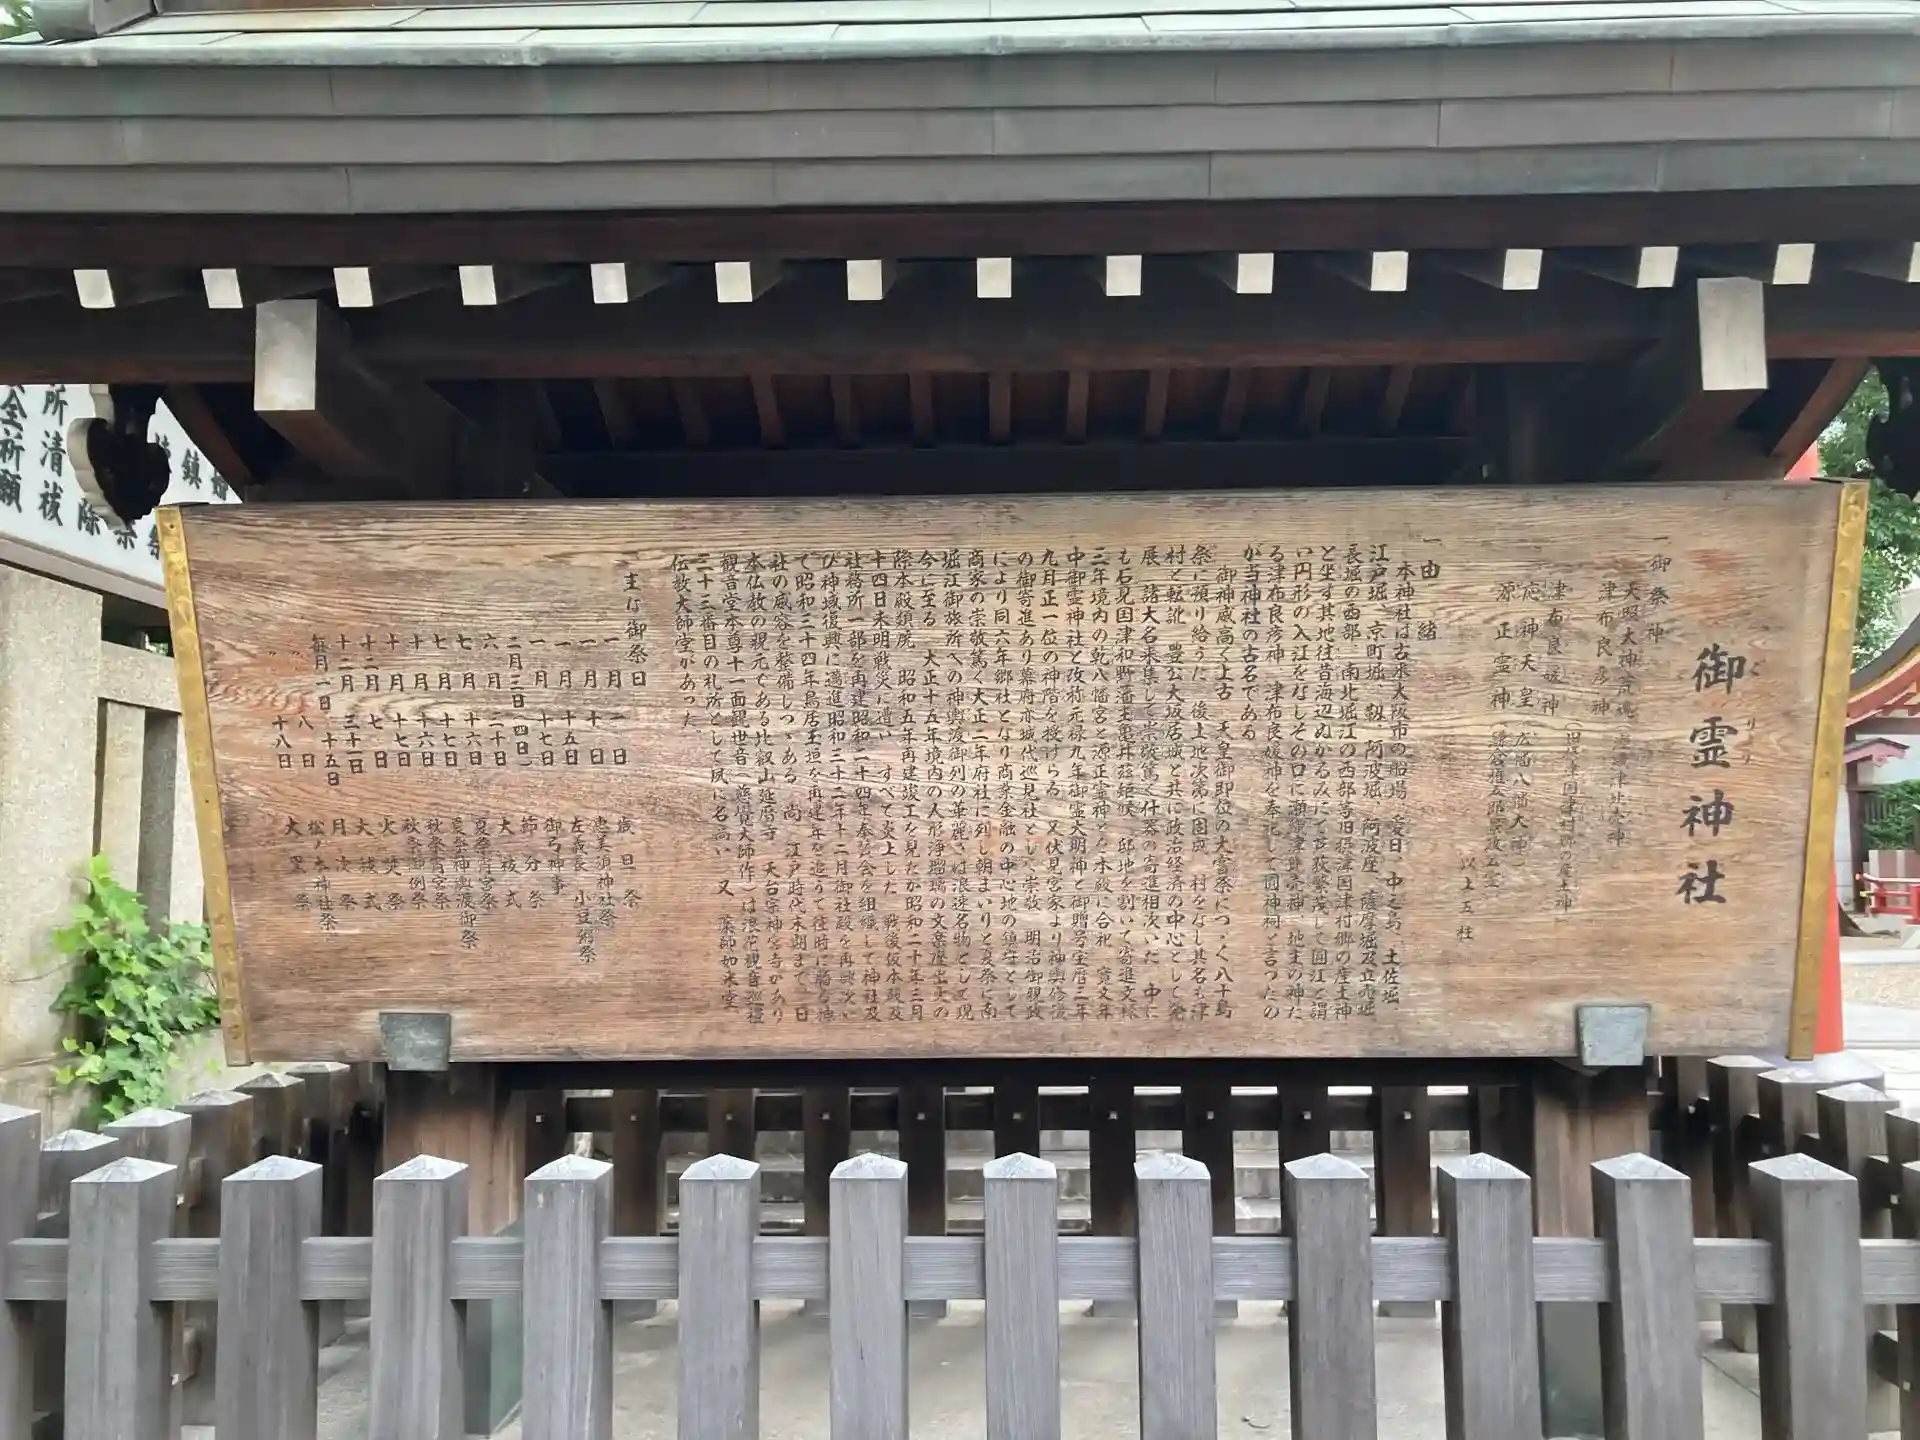 御霊神社
ごりょう
一 御祭神
天照大神荒魂
津布良彦神
津布良媛神
応神天皇（広幡八幡大神）
源正霊神
以上五柱
一 由緒
本神社は古来大阪市の船場、愛日、中之島、土佐堀、
江戸堀、京町堀、靱、阿波堀、阿波座、薩摩堀及立売堀、
長堀の西部、南北堀江の西部等旧摂津国津村郷の産土神
と坐す其地往昔海辺ぬかるみにて芦荻繁茂して圓江と謂
い円形の入江をなしその口に瀬織津比売神、地主の神た
る津布良彦神、津布良媛神を奉祀して圓神祠と言つたの
が当神社の古名である
御神威高く上古、天皇御即位の大嘗祭につゞく八十島
祭に預り給うた、後土地次第に固成、村をなし其名も津
村と転訛、豊公大坂居城と共に政治経済の中心として発
展、諸大名来集して崇敬篤く什器の寄進相次いだ、中に
も石見国津和野藩主亀井茲矩候、邸地を割いて寄進文禄
三年境内の乾八幡宮と源正霊神とを本殿に合祀、寛文年
中御霊神社と改称元禄九年御霊大明神と御贈号宝暦三年
九月正一位の神階を授けらる、又伏見宮家より神輿修復
の御寄進あり幕府亦城代巡見社として崇敬、明治御親政
により同六年郷社となり商業金融の中心地の鎮守として
商家の崇敬篤く大正二年府社に列し朝まいりと夏祭に南
堀江御旅所への神輿渡御列の華麗さは浪速名物として現
今に至る、大正十五年境内の人形浄瑠璃の文楽座出火の
際本殿類焼、昭和五年再建竣工を見たが昭和二十年三月
十四日未明戦災に遭い、すべて炎上した、戦後仮本殿及
社務所一部を再建昭和二十四年奉賛会を組織して神社及
び神域復興に邁進昭和三十二年十二月御社殿を再興次い
で昭和三十四年鳥居玉垣を再建年を追うて往時に勝る神
社の威容を整備しつゝある、尚、江戸時代末期まで、日
本仏教の親元である比叡山延暦寺、天台宗神宮寺があり
観音堂本尊十一面観世音（慈覚大師作）は浪花観音巡禮
三十三番目の札所として夙に名高い、又、薬師如来堂、
伝教大師堂があった。
主な御祭日
一月一日 歳旦祭
一月十日 恵美須神社祭
一月十五日 左義長 小豆粥祭
一月十七日 御弓神事
二月三日（四日） 節分祭
六月三十日 大祓式
七月十六日 夏祭宵宮祭
七月十七日 夏祭神輿渡御祭
十月十六日 秋祭宵宮祭
十月十七日 秋祭御例祭
十二月七日 火焚祭
十二月三十一日 大祓式
毎月一日、十五日 月次祭
〃 八日 松ノ木神社祭
〃 十八日 大黒祭
所清祓
全祈願
除
鎮